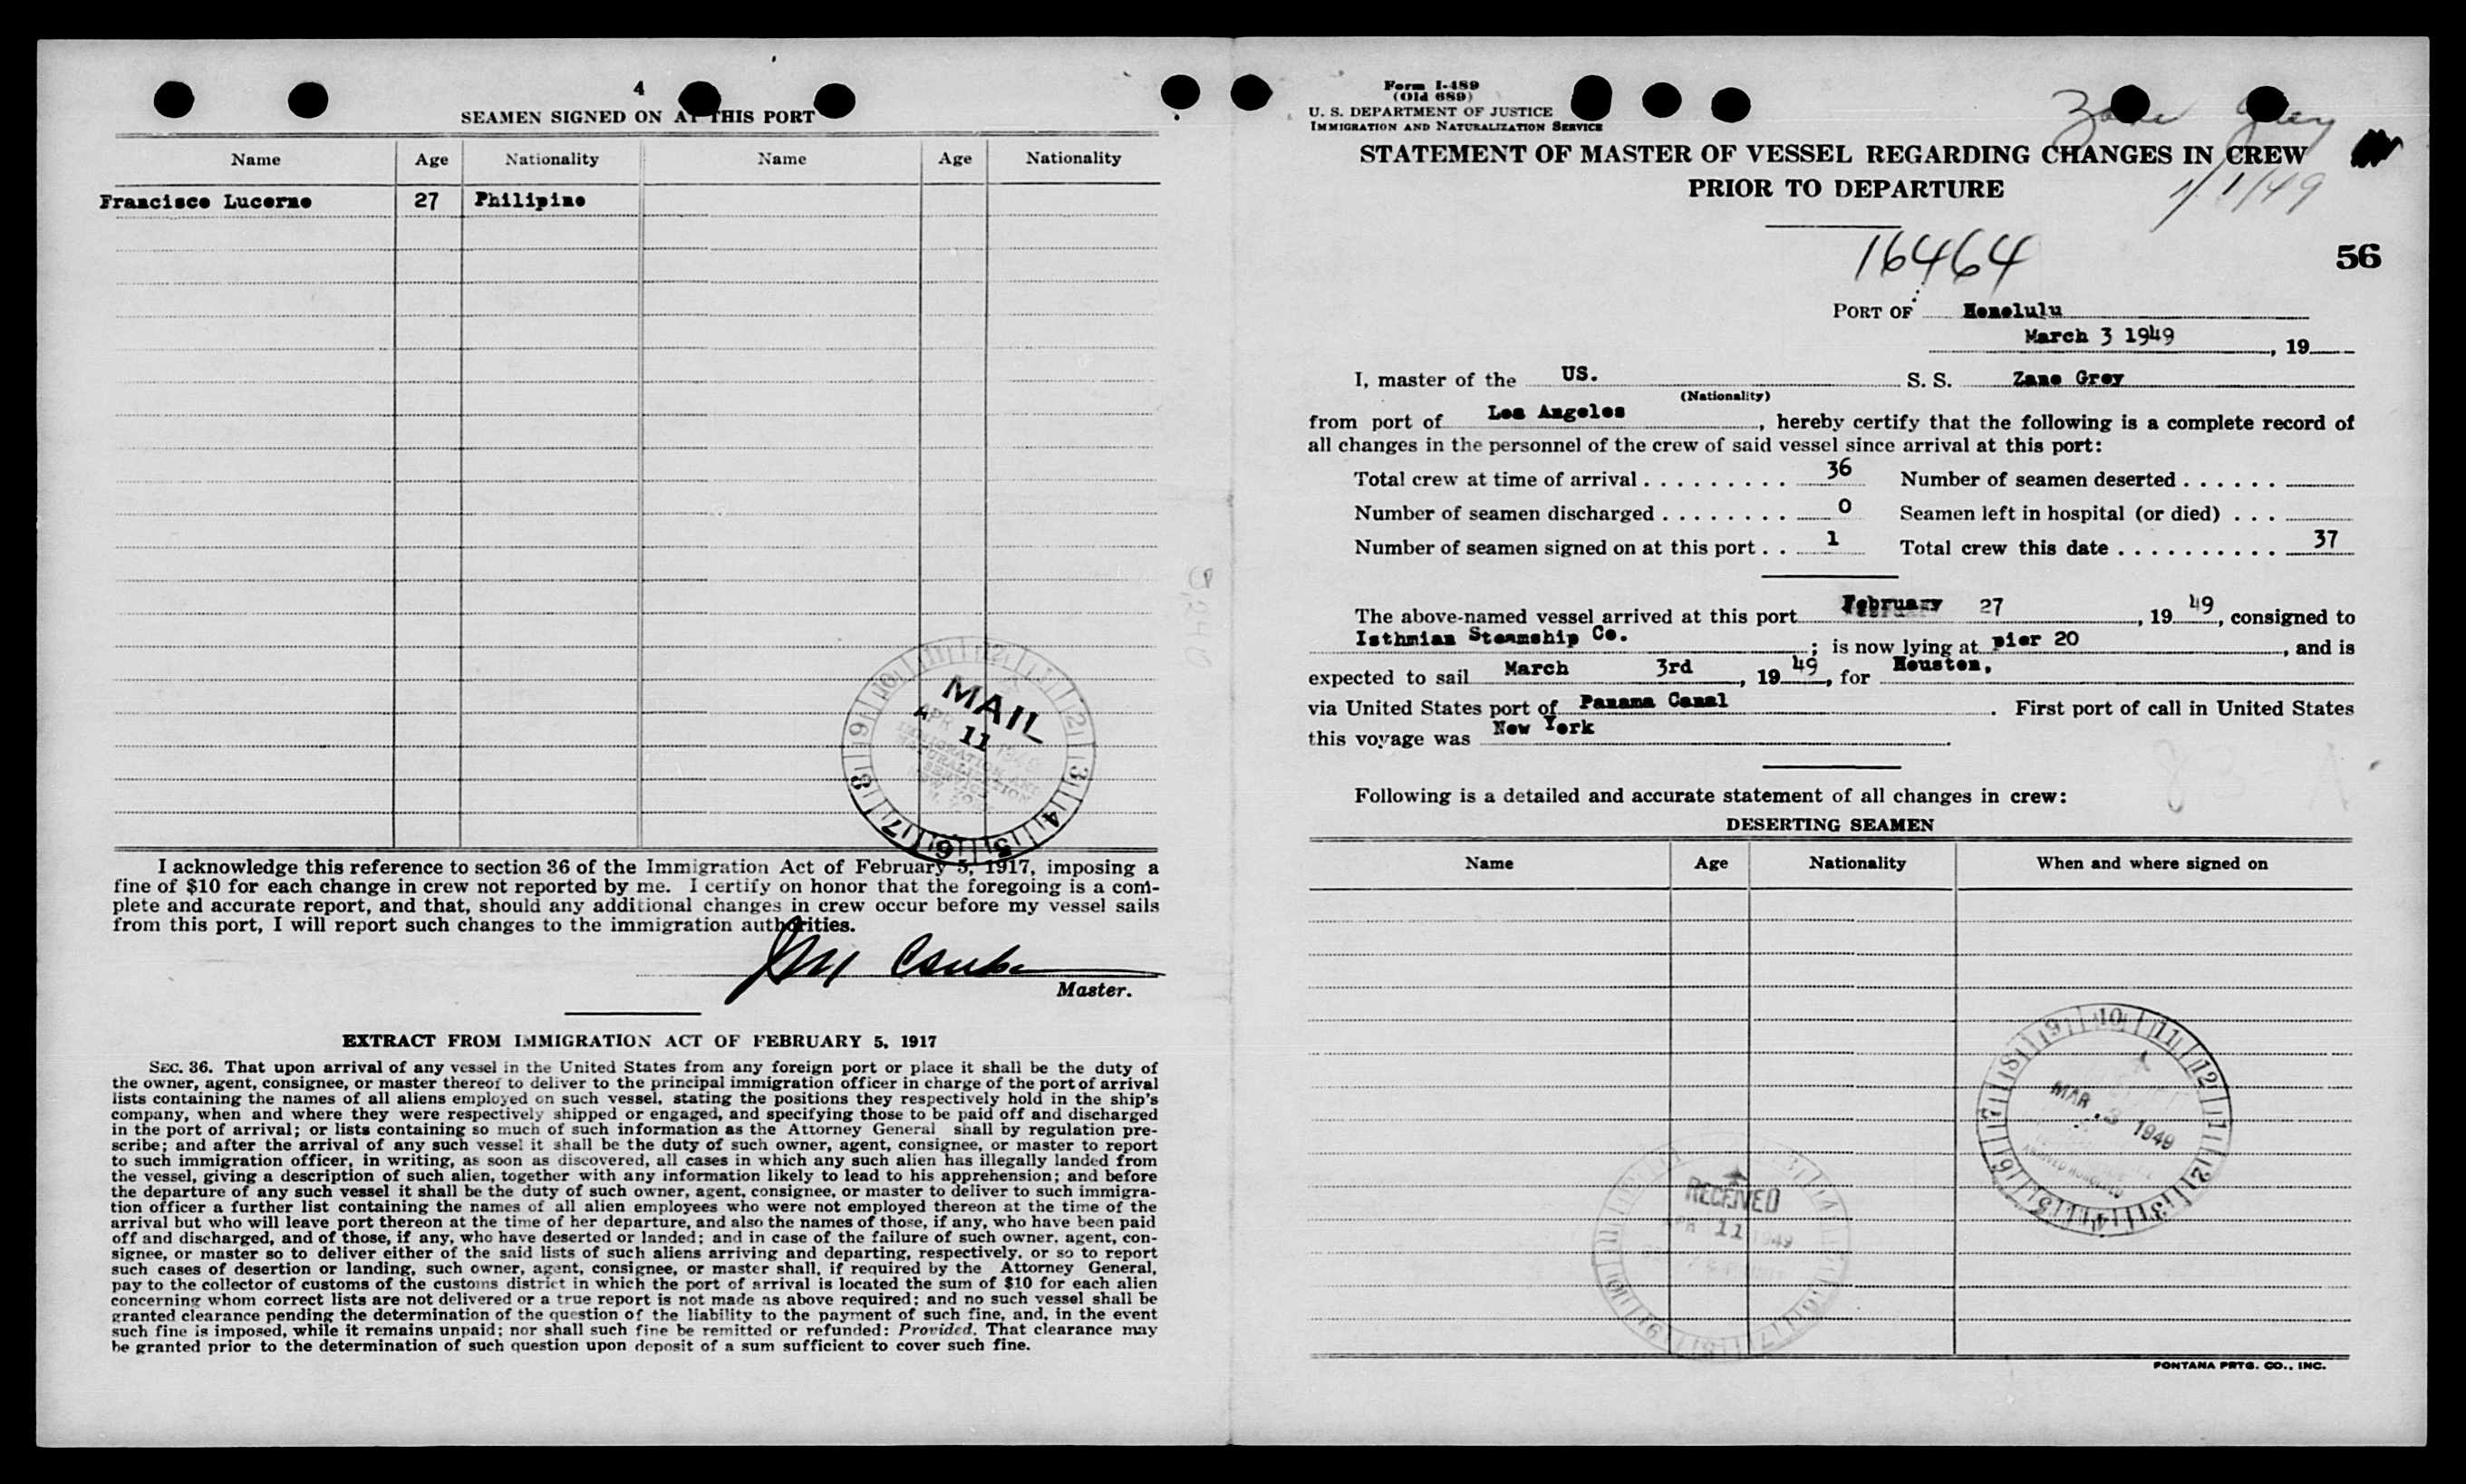 4
SEAMEN SIGNED ON AT THIS PORT
Name Age Nationality Name Age Nationality
Francisco Lucerno 27 Philipino
MAIL
APR 11 1949
IMMIGRATION AND
NATURALIZATION
SERVICE
12 1 2 3 4 5 6 7 8 9 10 11
I acknowledge this reference to section 36 of the Immigration Act of February 5, 1917, imposing a
fine of $10 for each change in crew not reported by me. I certify on honor that the foregoing is a com-
plete and accurate report, and that, should any additional changes in crew occur before my vessel sails
from this port, I will report such changes to the immigration authorities.
Master.
EXTRACT FROM IMMIGRATION ACT OF FEBRUARY 5, 1917
SEC. 36. That upon arrival of any vessel in the United States from any foreign port or place it shall be the duty of
the owner, agent, consignee, or master thereof to deliver to the principal immigration officer in charge of the port of arrival
lists containing the names of all aliens employed on such vessel, stating the positions they respectively hold in the ship's
company, when and where they were respectively shipped or engaged, and specifying those to be paid off and discharged
in the port of arrival; or lists containing so much of such information as the Attorney General shall by regulation pre-
scribe; and after the arrival of any such vessel it shall be the duty of such owner, agent, consignee, or master to report
to such immigration officer, in writing, as soon as discovered, all cases in which any such alien has illegally landed from
the vessel, giving a description of such alien, together with any information likely to lead to his apprehension; and before
the departure of any such vessel it shall be the duty of such owner, agent, consignee, or master to deliver to such immigra-
tion officer a further list containing the names of all alien employees who were not employed thereon at the time of the
arrival but who will leave port thereon at the time of her departure, and also the names of those, if any, who have been paid
off and discharged, and of those, if any, who have deserted or landed; and in case of the failure of such owner, agent, con-
signee, or master so to deliver either of the said lists of such aliens arriving and departing, respectively, or so to report
such cases of desertion or landing, such owner, agent, consignee, or master shall, if required by the Attorney General,
pay to the collector of customs of the customs district in which the port of arrival is located the sum of $10 for each alien
concerning whom correct lists are not delivered or a true report is not made as above required; and no such vessel shall be
granted clearance pending the determination of the question of the liability to the payment of such fine, and, in the event
such fine is imposed, while it remains unpaid; nor shall such fine be remitted or refunded: Provided, That clearance may
be granted prior to the determination of such question upon deposit of a sum sufficient to cover such fine.
Form I-489
(Old 689)
U. S. DEPARTMENT OF JUSTICE
IMMIGRATION AND NATURALIZATION SERVICE
Zane Grey
STATEMENT OF MASTER OF VESSEL REGARDING CHANGES IN CREW
PRIOR TO DEPARTURE
1/1/49
16464
56
PORT OF Honolulu
March 3 1949, 19
I, master of the US. S. S. Zane Grey
(Nationality)
from port of Los Angeles, hereby certify that the following is a complete record of
all changes in the personnel of the crew of said vessel since arrival at this port:
Total crew at time of arrival 36 Number of seamen deserted
Number of seamen discharged 0 Seamen left in hospital (or died)
Number of seamen signed on at this port 1 Total crew this date 37
The above-named vessel arrived at this port February 27, 1949, consigned to
Isthmian Steamship Co.; is now lying at pier 20, and is
expected to sail March 3rd, 1949, for Houston,
via United States port of Panama Canal. First port of call in United States
this voyage was New York.
Following is a detailed and accurate statement of all changes in crew:
DESERTING SEAMEN
Name Age Nationality When and where signed on
MAR. 3 1949
RECEIVED
APR 11 1949
FONTANA PRTG. CO., INC.